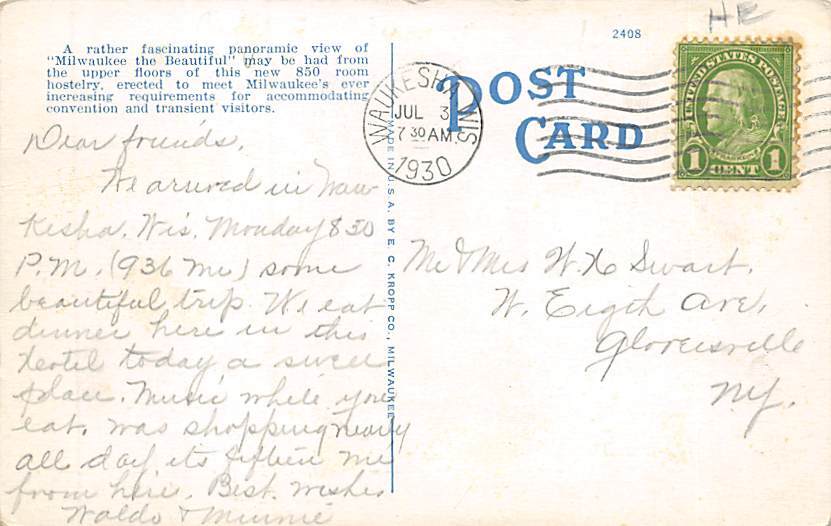 HE
2408
A rather fascinating panoramic view of
"Milwaukee the Beautiful" may be had from
the upper floors of this new 850 room
hostelry, erected to meet Milwaukee's ever
increasing requirements for accommodating
convention and transient visitors.
POST
CARD
WAUKESHA, WIS.
JUL 3
7 30 AM
1930
UNITED STATES POSTAGE
FRANKLIN
1 CENT 1
MADE IN U.S.A. BY E. C. KROPP CO., MILWAUKEE
Dear friends,
We arrived in Wau-
kesha, Wis. Monday 8 50
P.M. (936 mi) some
beautiful trip. We eat
dinner here in this
Hotel today a swell
place. Music while you
eat. was shopping nearly
all day its fifteen mi
from here. Best wishes
Waldo & Minnie
Mr & Mrs W. H Swart.
W. Eigth Ave,
Gloversville
NY.